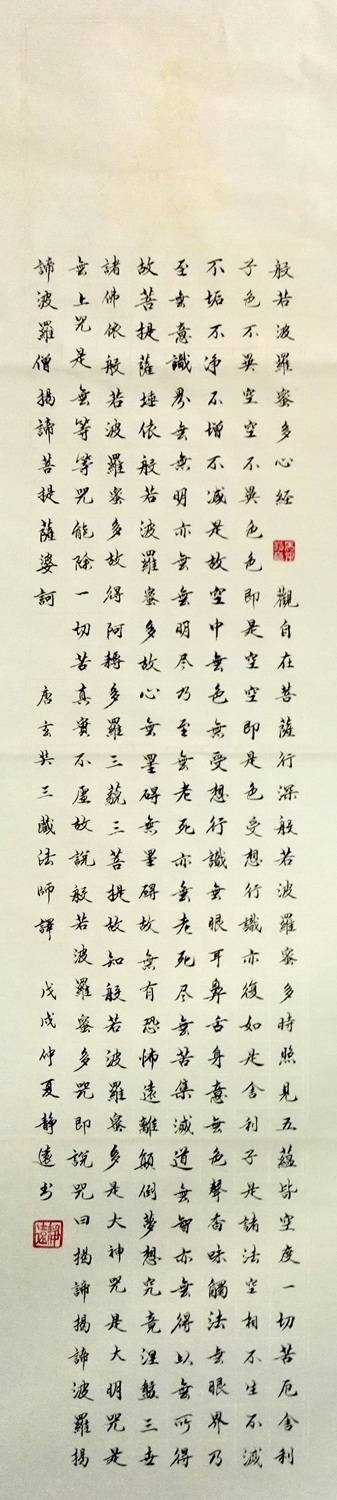 般若波羅蜜多心經 觀自在菩薩行深般若波羅蜜多時照見五蘊皆空度一切苦厄舍利
子色不異空空不異色色即是空空即是色受想行識亦復如是舍利子是諸法空相不生不滅
不垢不淨不增不減是故空中無色無受想行識無眼耳鼻舌身意無色聲香味觸法無眼界乃
至無意識界無無明亦無無明尽乃至無老死亦無老死尽無苦集滅道無智亦無得以無所得
故菩提薩埵依般若波羅蜜多故心無罣碍無罣碍故無有恐怖遠離顛倒夢想究竟涅盤三世
諸佛依般若波羅蜜多故得阿耨多羅三藐三菩提故知般若波羅蜜多是大神咒是大明咒是
無上咒是無等等咒能除一切苦真實不虛故說般若波羅蜜多咒即說咒曰揭諦揭諦波羅揭
諦波羅僧揭諦菩提薩婆訶 唐玄奘三藏法師譯 戊戌仲夏靜遠书
靜遠